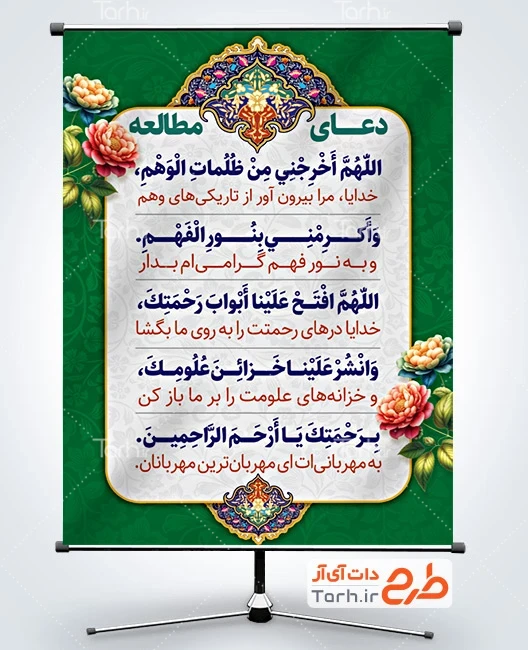 دعــای مطالعه
اللّهُمَّ أَخْرِجْنِي مِنْ ظُلُماتِ الْوَهْمِ،
خدایا، مرا بیرون آور از تاریکی‌های وهم
وَأَكــرِمْنــي بِنُــورِ الْفَهْــمِ.
و به نور فهم گرامی‌ام بدار
اللّهُمَّ افْتَحْ عَلَيْنا أَبْوابَ رَحْمَتِكَ،
خدایا درهای رحمتت را به روی ما بگشا
وَانْشُرْ عَلَيْنا خَــزائِــنَ عُلُومِـكَ،
و خزانه‌های علومت را بر ما باز کن
بِـرَحْمَتِكَ يَـا أَرْحَـمَ الرَّاحِمِيـنَ.
به مهربانی‌ات ای مهربان‌ترین مهربانان.
دات آی آر
طرح
Tarh.ir